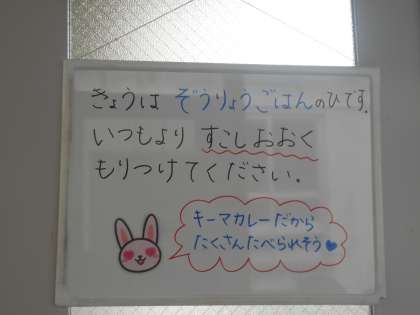 きょうは ぞうりょうごはんのひです.
いつもより すこしおおく
もりつけてください.
キーマカレーだから
たくさんたべられそう♥